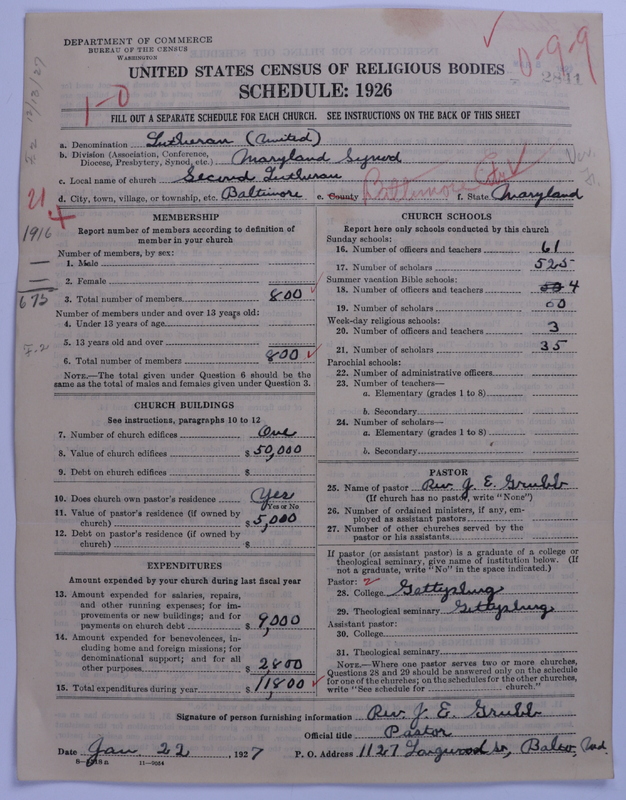 DEPARTMENT OF COMMERCE
BUREAU OF THE CENSUS
WASHINGTON
0-9-9
2841
UNITED STATES CENSUS OF RELIGIOUS BODIES
SCHEDULE: 1926
1-0
12/13/27
FILL OUT A SEPARATE SCHEDULE FOR EACH CHURCH. SEE INSTRUCTIONS ON THE BACK OF THIS SHEET
a. Denomination Lutheran (United)
b. Division (Association, Conference, Diocese, Presbytery, Synod, etc.) Maryland Synod
c. Local name of church Second Lutheran
d. City, town, village, or township, etc. Baltimore e. County Baltimore City f. State Maryland
21
4
1916
675
MEMBERSHIP
Report number of members according to definition of
member in your church
Number of members, by sex:
1. Male
2. Female
3. Total number of members 800
Number of members under and over 13 years old:
4. Under 13 years of age
5. 13 years old and over
6. Total number of members 800
NOTE.—The total given under Question 6 should be the
same as the total of males and females given under Question 3.
CHURCH BUILDINGS
See instructions, paragraphs 10 to 12
7. Number of church edifices One
8. Value of church edifices $ 50,000
9. Debt on church edifices $
10. Does church own pastor's residence Yes
Yes or No
11. Value of pastor's residence (if owned by
church) $ 5,000
12. Debt on pastor's residence (if owned by
church) $
EXPENDITURES
Amount expended by your church during last fiscal year
13. Amount expended for salaries, repairs,
and other running expenses; for im-
provements or new buildings; and for
payments on church debt $ 9,000
14. Amount expended for benevolences, in-
cluding home and foreign missions; for
denominational support; and for all
other purposes $ 2800
15. Total expenditures during year $ 11,800
CHURCH SCHOOLS
Report here only schools conducted by this church
Sunday schools:
16. Number of officers and teachers 61
17. Number of scholars 525
Summer vacation Bible schools:
18. Number of officers and teachers 4
19. Number of scholars 60
Week-day religious schools:
20. Number of officers and teachers 3
21. Number of scholars 35
Parochial schools:
22. Number of administrative officers
23. Number of teachers—
a. Elementary (grades 1 to 8)
b. Secondary
24. Number of scholars—
a. Elementary (grades 1 to 8)
b. Secondary
PASTOR
25. Name of pastor Rev. J. E. Grubb
(If church has no pastor, write "None")
26. Number of ordained ministers, if any, em-
ployed as assistant pastors
27. Number of other churches served by the
pastor or his assistants
If pastor (or assistant pastor) is a graduate of a college or
theological seminary, give name of institution below. (If
not a graduate, write "No" in the space indicated.)
Pastor: 2
28. College Gettysburg
29. Theological seminary Gettysburg
Assistant pastor:
30. College
31. Theological seminary
NOTE.—Where one pastor serves two or more churches,
Questions 28 and 29 should be answered only on the schedule
for one of the churches; on the schedules for the other churches,
write "See schedule for church."
Signature of person furnishing information Rev. J. E. Grubb
Official title Pastor
Date Jan 22, 1927 P. O. Address 1127 Longwood St, Balto, Md.
11—9054